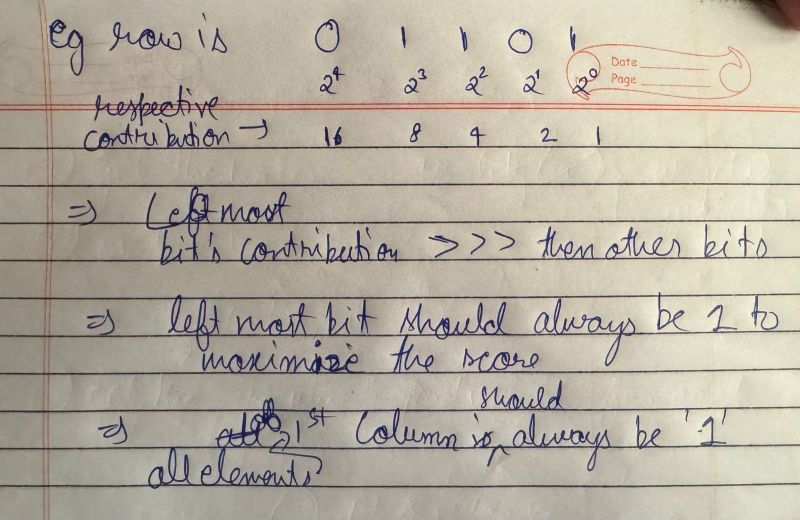 eg row is 0 1 1 0 1
Date
Page
2⁴ 2³ 2² 2¹ 2⁰
respective
contribution → 16 8 4 2 1
⇒ Left most
bit's contribution >>> then other bits
⇒ left most bit should always be 1 to
maximize the score
should
⇒ 1st Column always be '1'
all elements